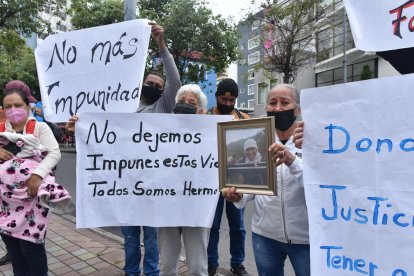 No más
Impunidad
No dejemos
Impunes estas Vi
Todos Somos Herm
Dona
Justic
Tener